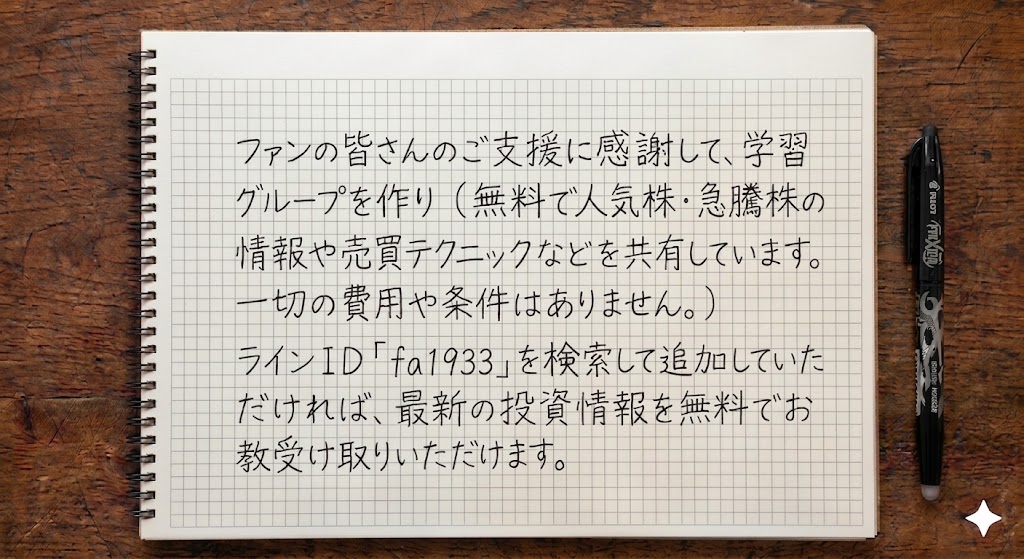 ファンの皆さんのご支援に感謝して、学習
グループを作り（無料で人気株・急騰株の
情報や売買テクニックなどを共有しています。
一切の費用や条件はありません。）
ラインID「fa1933」を検索して追加していた
だければ、最新の投資情報を無料でお
教受け取りいただけます。
PILOT